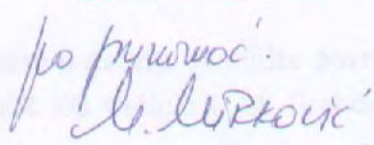 po punomoć
M. Mirković